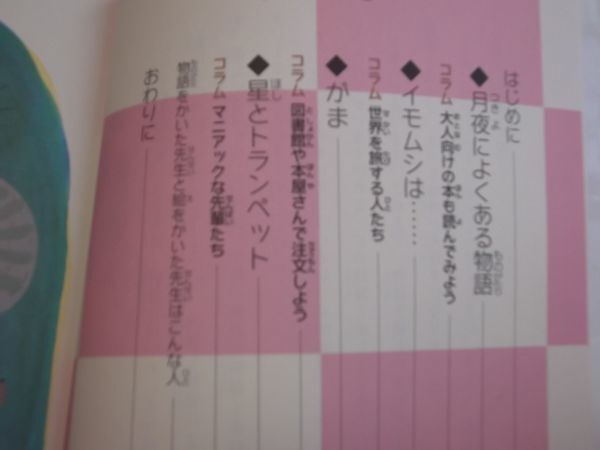 はじめに
◆月夜によくある物語
コラム 大人向けの本も読んでみよう
◆イモムシは……
コラム 世界を旅する人たち
◆がま
コラム 図書館や本屋さんで注文しよう
◆星とトランペット
コラム マニアックな先輩たち
物語をかいた先生と絵をかいた先生はこんな人
おわりに